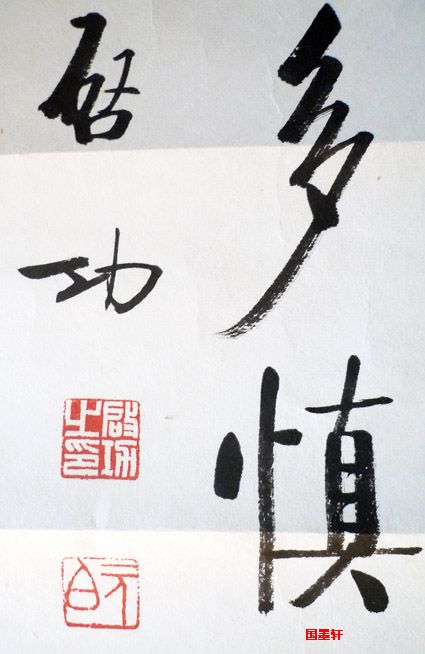 多慎
启功
啟功之印
元白
国墨轩